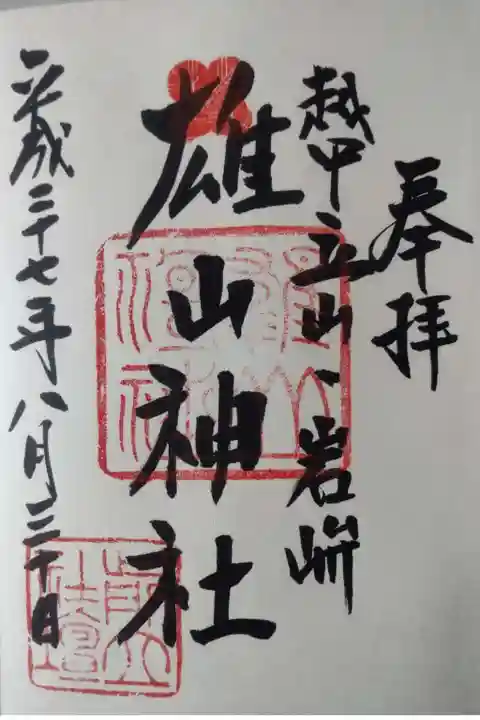 奉拝
越中立山、岩峅
雄山神社
平成二十七年八月三十日
前立
社壇